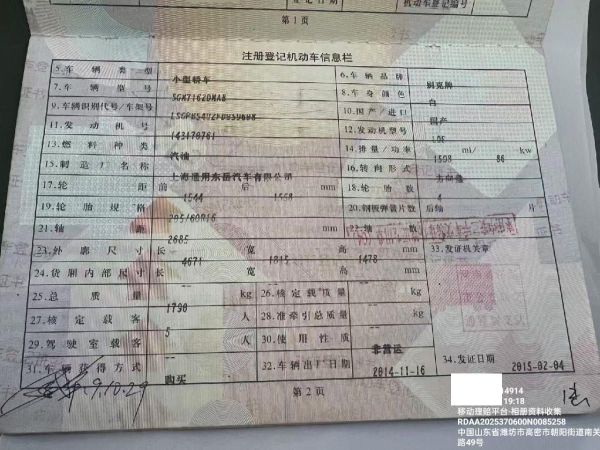 登记日期
机动车登记编号
第1页
注册登记机动车信息栏
5.车辆类型 小型轿车 6.车辆品牌 别克牌
7.车辆型号 SGM7162DMAB 8.车身颜色 白
9.车辆识别代号/车架号 10.国产/进口 国产
11.发动机号 143170761 12.发动机型号
13.燃料种类 汽油 14.排量/功率 1598 ml/ 86 kw
15.制造厂名称 上海通用东岳汽车有限公司 16.转向形式 方向盘
17.轮距 前 1544 后 1558 mm 18.轮胎数 4
19.轮胎规格 205/60R16 20.钢板弹簧片数 后轴 片
21.轴距 2685 mm 22.轴数
23.外廓尺寸 长 4671 宽 1815 高 1478 mm 33.发证机关章
24.货厢内部尺寸 长 宽 高 mm
25.总质量 1790 kg 26.核定载质量 kg
27.核定载客 5 人 28.准牵引总质量 kg
29.驾驶室载客 人 30.使用性质 非营运
31.车辆获得方式 购买 32.车辆出厂日期 2014-11-16 34.发证日期 2015-02-04
9.10.29
第2页
14914
19:18
移动理赔平台-相册资料收集
RDAA2025370600N0085258
中国山东省潍坊市高密市朝阳街道南关
路49号